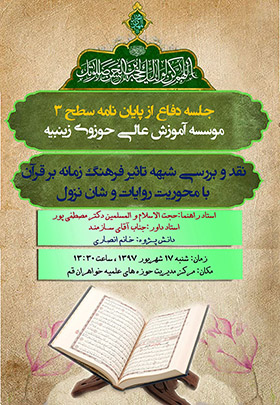 جلسه دفاع از پایان نامه سطح ۳
موسسه آموزش عالی حوزوی زینبیه
نقد و بررسی شبهه تاثیر فرهنگ زمانه بر قرآن
با محوریت روایات و شان نزول
استاد راهنما: حجت الاسلام و المسلمین دکتر مصطفی پور
استاد داور: جناب آقای سازمند
دانش پژوه: خانم انصاری
زمان: شنبه ۱۷ شهریور ۱۳۹۷، ساعت ۱۳:۳۰
مکان: مرکز مدیریت حوزه های علمیه خواهران قم